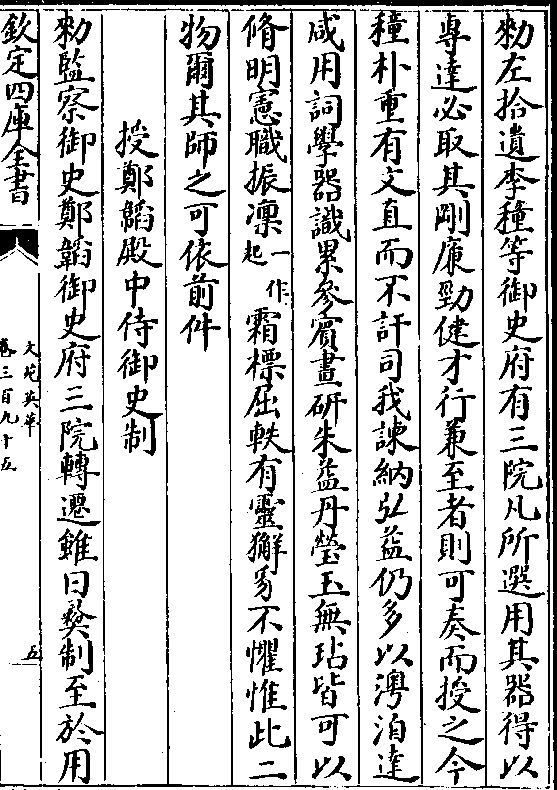 勑左拾遺李穜等御史府有三院凡所選用其器得以
專達必取其剛廉勁健才行兼至者則可奏而授之今
穜朴重有文直而不訐司我諫納弘益仍多以濤洎達
咸用詞學器識累參賓畫研朱益丹瑩玉無玷皆可以
脩明憲職振凜一作起霜標屈軼有靈獬豸不懼惟此二
物爾其師之可依前件
授鄭韜殿中侍御史制
勑監察御史鄭韜御史府三院轉遷雖曰彜制至於用
欽定四庫全書
文苑英華
卷三百九十五
五